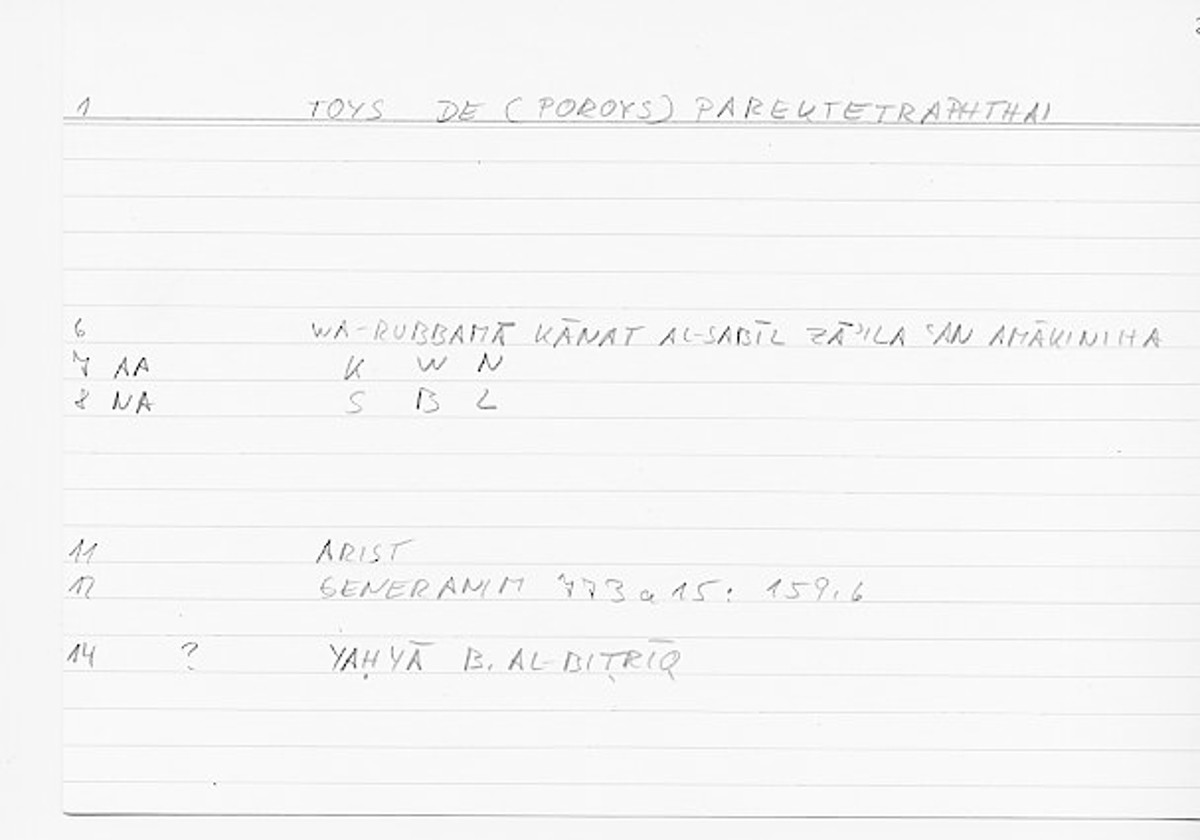 1 TOYS DE (POROYS) PAREKTETRAPHTHAI
6 WA-RUBBAMĀ KĀNAT AL-SABĪL ZĀʾILA ʿAN AMĀKINIHA
7 AA K W N
8 NA S B L
11 ARIST
12 GENERANIM 773 a 15: 159.6
14 ? YAḤYĀ B. AL-BIṬRĪQ